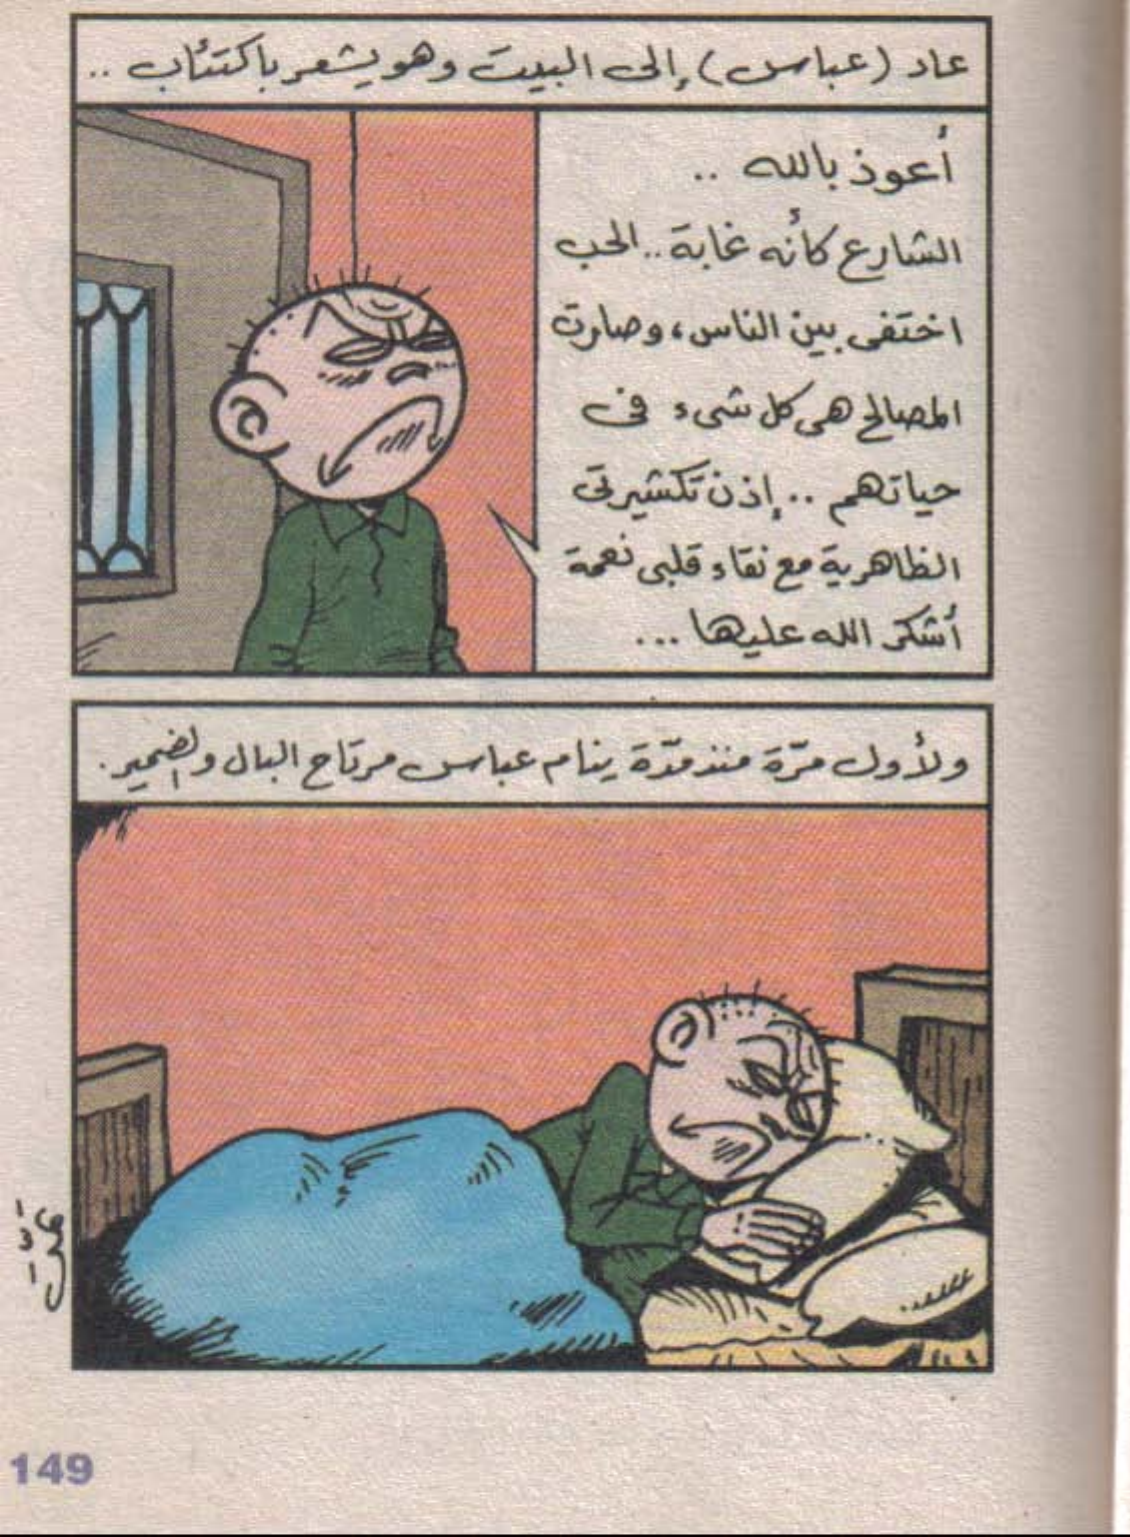 عاد (عباس) إلى البيت وهو يشعر باكتئاب ..
أعوذ بالله ..
الشارع كأنه غابة .. الحب
اختفى بين الناس، وصارت
المصالح هى كل شىء فى
حياتهم .. إذن تكشيرتى
الظاهرية مع نقاء قلبى نعمة
أشكر الله عليها ...
ولأول مرّة منذ مدّة ينام عباس مرتاح البال والضمير.
149